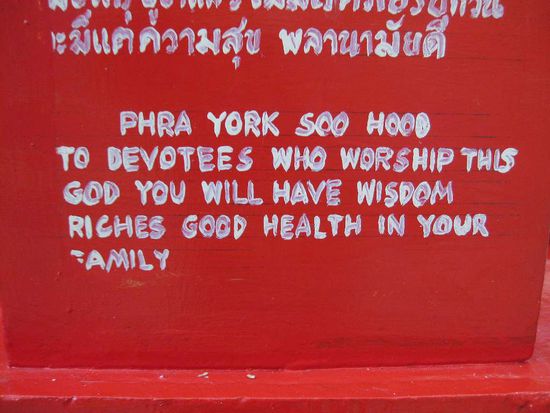 จะมีแต่ความสุข พลานามัยดี
PHRA YORK SOO HOOD
TO DEVOTEES WHO WORSHIP THIS
GOD YOU WILL HAVE WISDOM
RICHES GOOD HEALTH IN YOUR
FAMILY